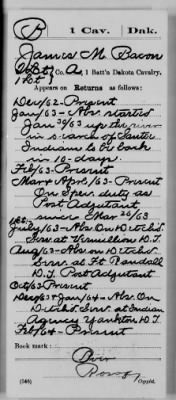 B | 1 Cav. | Dak.
James M. Bacon
1 Lt, Co. A, 1 Batt'n Dakota Cavalry.
Appears on Returns as follows:
Dec/62 - Present
Jan/63 - Abs. started
Jan 30/63 up the river
in search of Santee
Indians to be back
in 10 days.
Feb/63 - Present
Mar & Apr/63 - Present
On Spec. duty as
Post Adjutant
since Mar 26/63
July/63 - Abs. On Detchd
Serv. at Vermillion D.T.
Aug/63 - Abs. on Detchd
Serv. at Ft Randall
D.T. Post Adjutant
Oct/63 Present
Dec/63 & Jan/64 - Abs. On
Detchd. Serv. at Indian
Agency Yankton D.T.
Feb/64 - Present
Book mark:
Over
(546)
Copyist.